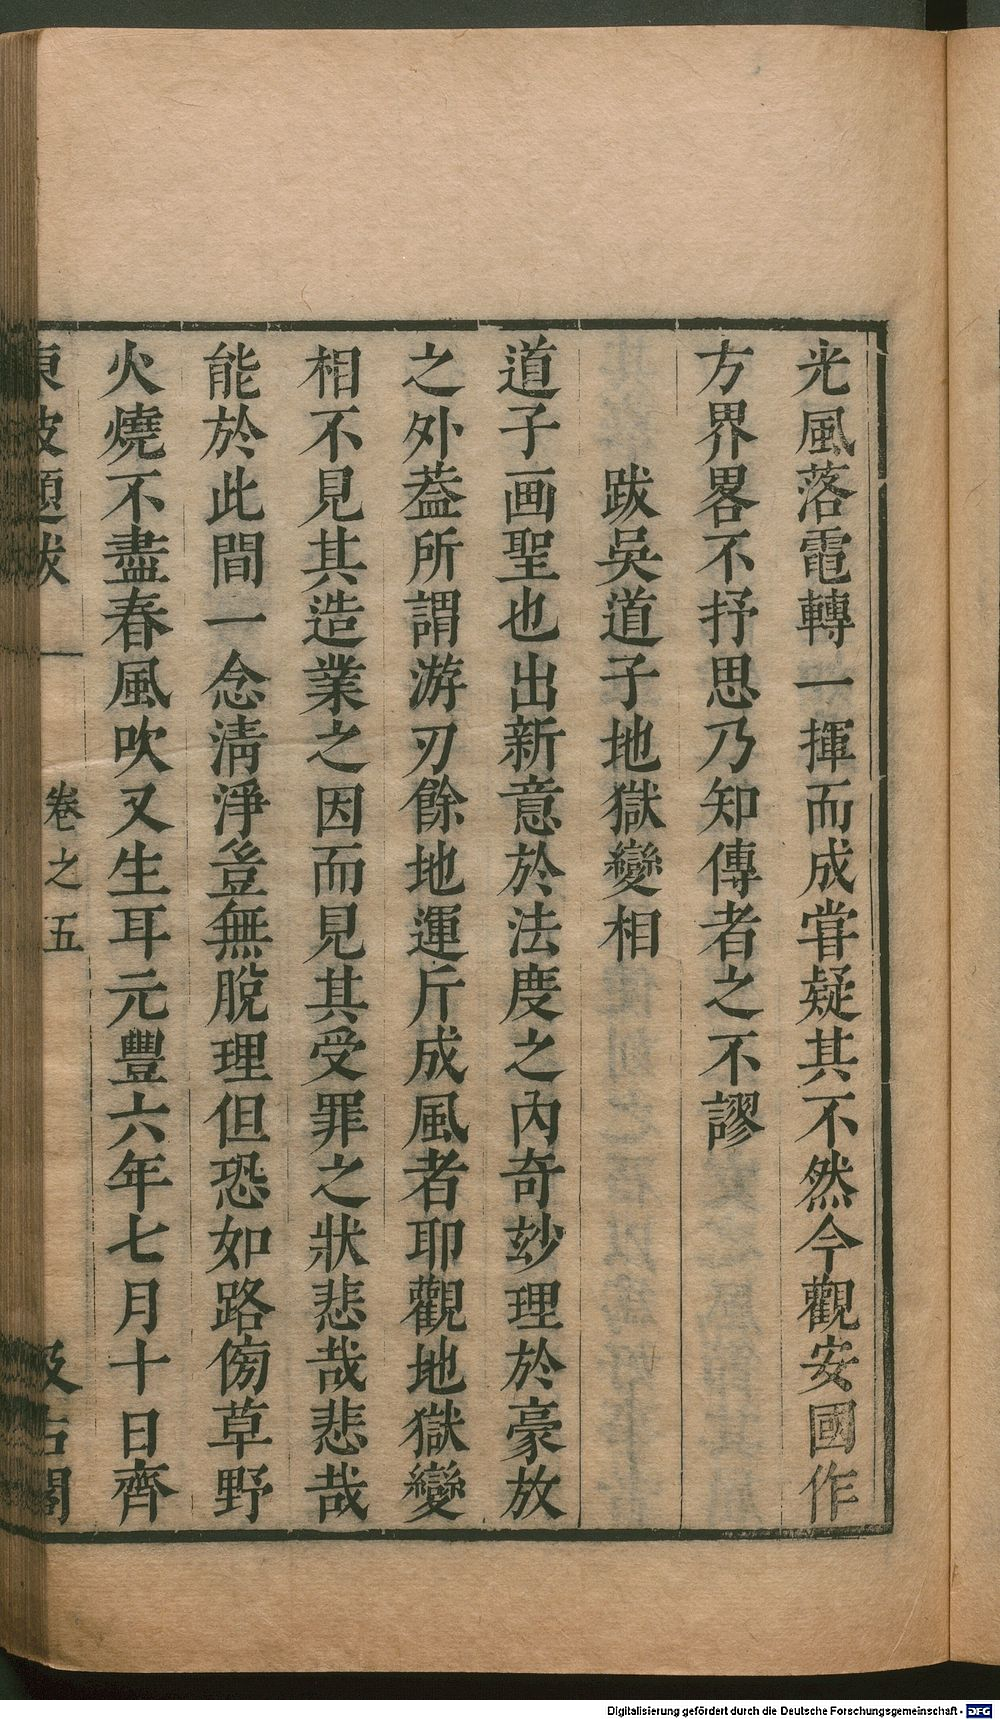 光風落電轉一揮而成嘗疑其不然今觀安國作
方界畧不抒思乃知傳者之不謬
跋吳道子地獄變相
道子画聖也出新意於法度之內奇玅理於豪放
之外葢所謂游刃餘地運斤成風者耶觀地獄變
相不見其造業之因而見其受罪之狀悲哉悲哉
能於此間一念清淨豈無脫理但恐如路傍草野
火燒不盡春風吹又生耳元豐六年七月十日齊
東坡題跋 卷之五 汲古閣
Digitalisierung gefördert durch die Deutsche Forschungsgemeinschaft - DFG